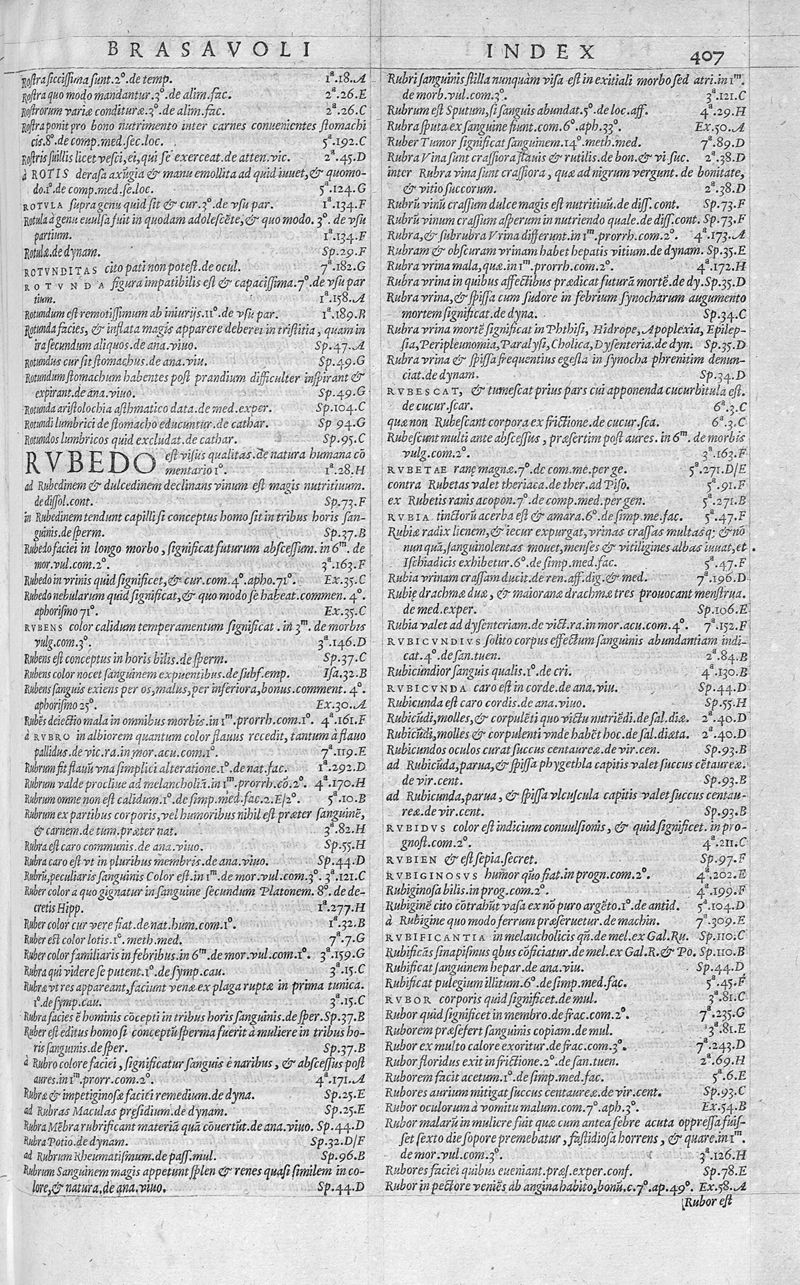 BRASAVOLI INDEX 407
Rostra siccissima sunt.2°.de temp. 1ª.18.A
Rostra quo modo mandantur.3°.de alim.fac. 2ª.26.E
Rostrorum variæ condituræ.3°.de alim.fac. 2ª.26.C
Rostra ponit pro bono nutrimento inter carnes conuenientes stomachi
cis.8°.de comp.med.sec.loc. 5ª.192.C
Rostris suillis licet vesci, ei, qui se exerceat.de atten.vic. 2ª.45.D
à ROTIS derasa axūgia & manu emollita ad quid iuuet, & quomo-
do.1°.de comp.med.se.loc. 5ª.124.G
ROTVLA supra genu quid sit & cur.3°.de vsu par. 1ª.134.F
Rotula à genu euulsa fuit in quodam adolescēte, & quo modo. 3°. de vsu
partium. 1ª.134.F
Rotulæ.de dynam. Sp.29.F
ROTVNDITAS cito pati non potest.de ocul. 7ª.182.G
ROTVNDA figura impatibilis est & capacissima.7°.de vsu par
tium. 1ª.158.A
Rotundum est remotissimum ab iniurijs.11°.de vsu par. 1ª.189.B
Rotunda facies, & inflata magis apparere deberet in tristitia, quam in
ira secundum aliquos.de ana.viuo. Sp.47.A
Rotundus cur sit stomachus.de ana.viu. Sp.49.G
Rotundum stomachum habentes post prandium difficulter inspirant &
expirant.de ana.viuo. Sp.49.G
Rotunda aristolochia asthmatico data.de med.exper. Sp.104.C
Rotundi lumbrici de stomacho educuntur.de cathar. Sp 94.G
Rotundos lumbricos quid excludat.de cathar. Sp.95.C
RVBEDO est visus qualitas.de natura humana cō
mentario 1°. 1ª.28.H
ad Rubedinem & dulcedinem declinans vinum est magis nutritiuum.
de dissol.cont. Sp.73.F
in Rubedinem tendunt capilli si conceptus homo sit in tribus horis san-
guinis.de sperm. Sp.37.B
Rubedo faciei in longo morbo, significat futurum abscessum. in 6ᵐ. de
mor.vul.com.2°. 3ª.163.F
Rubedo in vrinis quid significet, & cur.com.4°.apho.71°. Ex.35.C
Rubedo nebularum quid significat, & quo modo se habeat.commen. 4°.
aphorismo 71°. Ex.35.C
RVBENS color calidum temperamentum significat. in 3ᵐ. de morbis
vulg.com.3°. 3ª.146.D
Rubens est conceptus in horis bilis.de sperm. Sp.37.C
Rubens color nocet sanguinem expuentibus.de subf.emp. Isa.32.B
Rubens sanguis exiens per os, malus, per inferiora, bonus.comment. 4°.
aphorismo 25°. Ex.30.A
Rubēs deiectio mala in omnibus morbis.in 1ᵐ.prorrh.com.1°. 4ª.161.F
à RVBRO in albiorem quantum color flauus recedit, tantum à flauo
pallidus.de vic.ra.in mor.acu.com.1°. 7ª.119.E
Rubrum fit flauū vna simplici alteratione.1°.de nat.fac. 1ª.292.D
Rubrum valde procliue ad melancholiā.in 1ᵐ.prorrh.cō.2°. 4ª.170.H
Rubrum omne non est calidum.1°.de simp.med.fac.2.E/2°. 5ª.10.B
Rubrum ex partibus corporis, vel humoribus nihil est præter sanguinē,
& carnem.de tum.præter nat. 3ª.82.H
Rubra est caro communis.de ana.viuo. Sp.55.H
Rubra caro est vt in pluribus membris.de ana.viuo. Sp.44.D
Rubrū, peculiaris sanguinis Color est.in 1ᵐ.de mor.vul.com.3°. 3ª.121.C
Ruber color a quo gignatur in sanguine secundum Platonem. 8°. de de-
cretis Hipp. 1ª.277.H
Ruber color cur vere fiat.de nat.hum.com.1°. 1ª.32.B
Ruber est color lotis.1°.meth.med. 7ª.7.G
Ruber color familiaris in febribus.in 6ᵐ.de mor.vul.com.1°. 3ª.159.G
Rubra qui videre se putent.1°.de symp.cau. 3ª.15.C
Rubra vt res appareant, faciunt venæ ex plaga ruptæ in prima tunica.
1°.de symp.cau. 3ª.15.C
Rubra facies ē hominis cōcepti in tribus horis sanguinis.de sper. Sp.37.B
Ruber est editus homo si conceptū sperma fuerit à muliere in tribus ho-
ris sanguinis.de sper. Sp.37.B
à Rubro colore faciei, significatur sanguis è naribus, & abscessus post
aures.in 1ᵐ.prorr.com.2°. 4ª.171.A
Rubræ & impetiginosæ faciei remedium.de dyna. Sp.25.E
ad Rubras Maculas presidium.de dynam. Sp.25.E
Rubra Mēbra rubrificant materiā quā cōuertūt.de ana.viuo. Sp.44.D
Rubra Potio.de dynam. Sp.32.D/F
ad Rubrum Rheumatismum.de pass.mul. Sp.96.B
Rubrum Sanguinem magis appetunt splen & renes quasi similem in co-
lore, & natura.de ana.viuo. Sp.44.D
Rubri sanguinis stilla nunquàm visa est in exitiali morbo sed atri.in 1ᵐ.
de morb.vul.com.3°. 3ª.121.C
Rubrum est Sputum, si sanguis abundat.5°.de loc.aff. 4ª.29.H
Rubra sputa ex sanguine fiunt.com.6°.aph.33°. Ex.50.A
Ruber Tumor significat sanguinem.14°.meth.med. 7ª.89.D
Rubra Vina sunt crassiora flauis & rutilis.de bon.& vi suc. 2ª.38.D
inter Rubra vina sunt crassiora, quæ ad nigrum vergunt. de bonitate,
& vitio succorum. 2ª.38.D
Rubrū vinū crassum dulce magis est nutritiuū.de diss.cont. Sp.73.F
Rubrū vinum crassum asperum in nutriendo quale.de diss.cont. Sp.73.F
Rubra, & subrubra Vrina differunt.in 1ᵐ.prorrh.com.2°. 4ª.173.A
Rubram & obscuram vrinam habet hepatis vitium.de dynam. Sp.35.E
Rubra vrina mala, quæ.in 1ᵐ.prorrh.com.2°. 4ª.172.H
Rubra vrina in quibus affectibus prædicat futurā mortē.de dy. Sp.35.D
Rubra vrina, & spissa cum sudore in febrium synocharum augumento
mortem significat.de dyna. Sp.34.C
Rubra vrina mortē significat in Phthisi, Hidrope, Apoplexia, Epilep-
sia, Peripleunomia, Paralysi, Cholica, Dysenteria.de dyn. Sp.35.D
Rubra vrina & spissa frequentius egesta in synocha phrenitim denun-
ciat.de dynam. Sp.34.D
RVBESCAT, & tumescat prius pars cui apponenda cucurbitula est.
de cucur.scar. 6ª.3.C
quæ non Rubescant corpora ex frictione.de cucur.sca. 6ª.3.C
Rubescunt multi ante abscessus, præsertim post aures. in 6ᵐ. de morbis
vulg.com.2°. 3ª.163.F
RVBETAE ranę magnæ.7°.de com.me.per ge. 5ª.271.D/E
contra Rubetas valet theriaca.de ther.ad Piso. 5ª.91.F
ex Rubetis ranis acopon.7°.de comp.med.per gen. 5ª.271.B
RVBIA tinctorū acerba est & amara.6°.de simp.me.fac. 5ª.47.F
Rubiæ radix licnem, & iecur expurgat, vrinas crassas multasq; & nō
nun quā, sanguinolentas mouet, menses & vitiligines albas iuuat, et
Ischiadicis exhibetur.6°.de simp.med.fac. 5ª.47.F
Rubia vrinam crassam ducit.de ren.aff.dig.& med. 7ª.196.D
Rubię drachmæ duæ, & maioranæ drachmæ tres prouocant menstrua.
de med.exper. Sp.106.E
Rubia valet ad dysenteriam.de vict.ra.in mor.acu.com.4°. 7ª.152.F
RVBICVNDIVS solito corpus effectum sanguinis abundantiam indi-
cat.4°.de san.tuen. 2ª.84.B
Rubicundior sanguis qualis.1°.de cri. 4ª.130.B
RVBICVNDA caro est in corde.de ana.viu. Sp.44.D
Rubicunda est caro cordis.de ana.viuo. Sp.55.H
Rubicūdi, molles, & corpulēti quo victu nutriēdi.de sal.diæ. 2ª.40.D
Rubicūdi, molles, & corpulenti vnde habēt hoc.de sal.diæta. 2ª.40.D
Rubicundos oculos curat succus centaureæ.de vir.cen. Sp.93.B
ad Rubicūda, parua, & spissa phygethla capitis valet succus cētaureæ.
de vir.cent. Sp.93.B
ad Rubicunda, parua, & spissa vlcuscula capitis valet succus centau-
reæ.de vir.cent. Sp.93.B
RVBIDVS color est indicium conuulsionis, & quid significet. in pro-
gnost.com.2°. 4ª.211.C
RVBIEN & est sepia.secret. Sp.97.F
RVBIGINOSVS humor quō fiat.in progn.com.2°. 4ª.202.E
Rubiginosa bilis.in prog.com.2°. 4ª.199.F
Rubiginē cito cōtrahūt vasa ex nō puro argēto.1°.de antid. 5ª.104.D
à Rubigine quo modo ferrum præseruetur.de machin. 7ª.309.E
RVBIFICANTIA in melancholicis qn̄.de mel.ex Gal.Ru. Sp.110.C
Rubificās sinapismus qbus cōficiatur.de mel.ex Gal.R.& Po. Sp.110.B
Rubificat sanguinem hepar.de ana.viu. Sp.44.D
Rubificat pulegium illitum.6°.de simp.med.fac. 5ª.45.F
RVBOR corporis quid significet.de mul. 3ª.81.C
Rubor quid significet in membro.de frac.com.2°. 7ª.235.G
Ruborem præsefert sanguinis copiam.de mul. 3ª.81.E
Rubor ex multo calore exoritur.de frac.com.3°. 7ª.243.D
Rubor floridus exit in frictione.2°.de san.tuen. 2ª.69.H
Ruborem facit acetum.1°.de simp.med.fac. 5ª.6.E
Rubores aurium mitigat succus centaureæ.de vir.cent. Sp.93.C
Rubor oculorum à vomitu malum.com.7°.aph.3°. Ex.54.B
Rubor malarū in muliere fuit quæ cum antea febre acuta oppressa fuis-
set sexto die sopore premebatur, fastidiosa horrens, & quare.in 1ᵐ.
de mor.vul.com.3°. 3ª.126.H
Rubores faciei quibus eueniant.præs.exper.conf. Sp.78.E
Rubor in pectore veniēs ab angina habito, bonū.c.7°.ap.49°. Ex.58.A
Rubor est